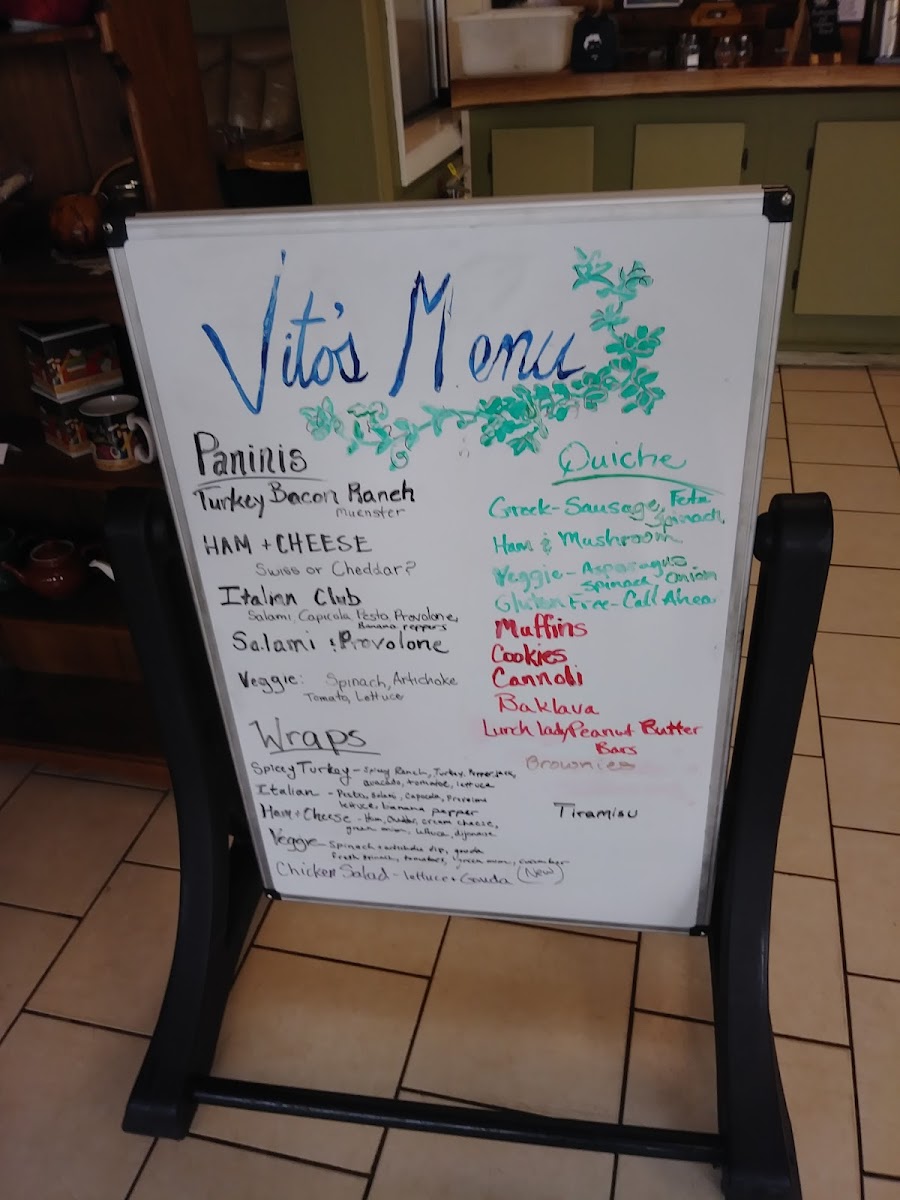 Vito's Menu
Paninis
Turkey Bacon Ranch
Muenster
HAM + CHEESE
Swiss or Cheddar?
Italian Club
Salami, Capicola, Pesto, Provolone,
Banana peppers
Salami & Provolone
Veggie: Spinach, Artichoke
Tomato, Lettuce
Wraps
Spicy Turkey - Spicy Ranch, Turkey, Pepper jack,
avocado, tomatoe, lettuce
Italian - Pesto, Salami, Capocola, Provolone
lettuce, banana pepper
Ham + Cheese - Ham, Cheddar, cream cheese,
green onion, lettuce, dijonaise
Veggie - Spinach + artichoke dip, gouda
Fresh spinach, tomatoes, green onion, cucumber
Chicken Salad - lettuce + Gouda (New)
Quiche
Greek - Sausage, Feta
Spinach
Ham & Mushroom
Veggie - Asparagus
Spinach, Onion
Gluten Free - Call Ahead
Muffins
Cookies
Cannoli
Baklava
Lunch lady Peanut Butter
Bars
Brownies
Tiramisu